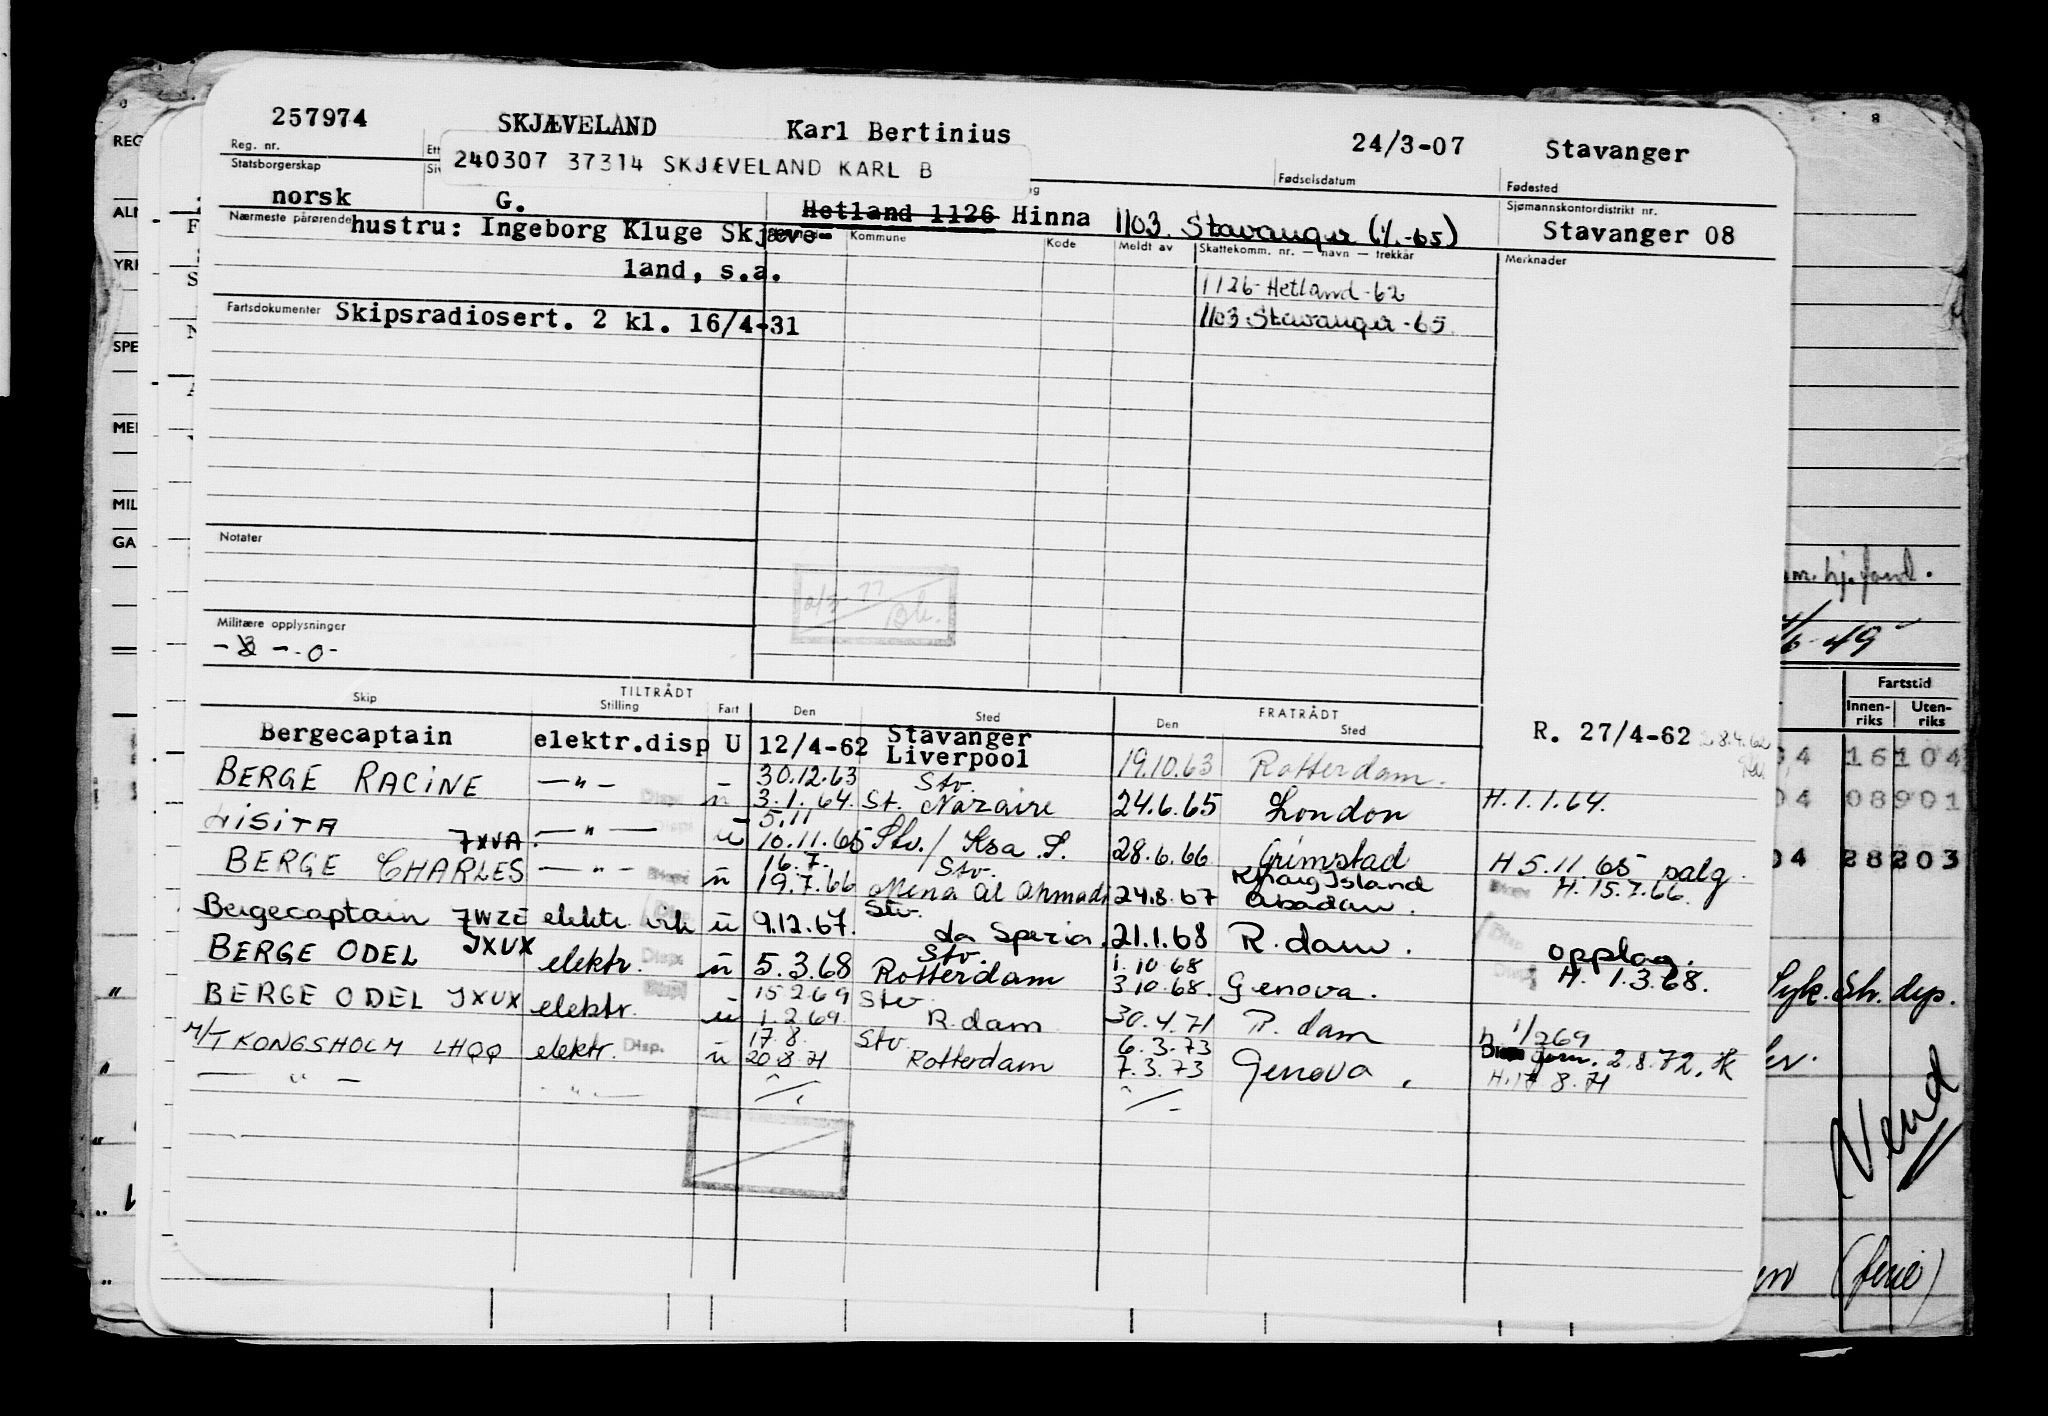 257974 SKJÆVELAND Karl Bertinius 24/3-07 Stavanger
Reg. nr. Ett
240307 37314 SKJÆVELAND KARL B
Fødselsdatum Fødested
Statsborgerskap Siv
norsk G. Hetland 1126 Hinna 1103 Stavanger (1/1-65)
Sjømannskontordistrikt nr.
Stavanger 08
Nærmeste pårørende hustru: Ingeborg Kluge Skjæve-
land, s.a.
Kommune Kode Meldt av Skattekomm. nr. — navn — trekkår Merknader
1126-Hetland-62
1103 Stavanger-65
Fartsdokumenter Skipsradiosert. 2 kl. 16/4-31
Notater
Militære opplysninger
TILTRÅDT FRATRÅDT
Skip Stilling Fart Den Sted Den Sted
Bergecaptain elektr.disp U 12/4-62 Stavanger Liverpool 19.10.63 Rotterdam. R. 27/4-62
BERGE RACINE —"— 30.12.63 Stv.
ü 3.1.64. St. Nazaire 24.6.65 London H.1.1.64.
LISITA 5.11
JXVA. —"— ü 10.11.65 Stv./ 28.6.66 Grimstad H 5.11.65 salg.
BERGE CHARLES —"— 16.7. Stv.
ü 19.7.66 Mena al Ahmadi 24.8.67 Kharg Island Abadan. H. 15.7.66.
Bergecaptain JWZE elektr. ü 9.12.67. Stv. La Spezia. 21.1.68 R.dam. opplag.
BERGE ODEL JXUX elektr. Disp. ü 5.3.68 Stv. Rotterdam 1.10.68 3.10.68. Genova. H. 1.3.68.
BERGE ODEL JXUX elektr. ü 15.2.69 1.2.69. Stv. R.dam 30.4.71 R.dam
M/T KONGSHOLM LHQQ elektr. Disp. ü 17.8. 20.8.71 Stv. Rotterdam 6.3.73 7.3.73 Genova. 2.8.72.
—"— —"—
REG
ALM
YRK
SPE
MEI
MIL
GA
hj. fond.
Fartstid
Innen-riks Uten-riks
04 16104
04 08901
04 28203
Syk. Str. dep.
Vend
(ferie)